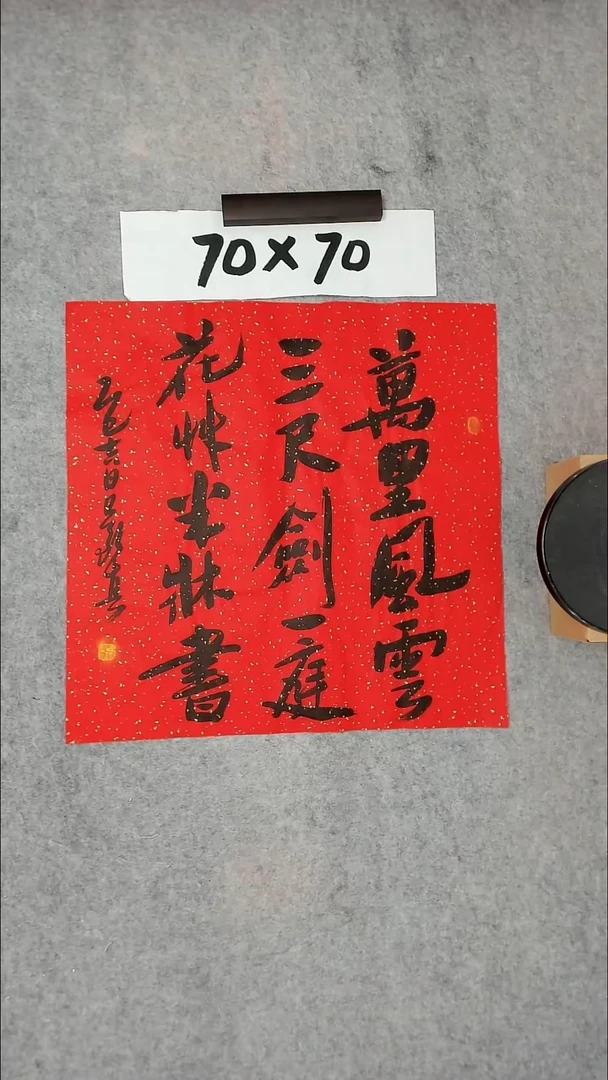 70×70
萬里風雲
三尺劍一庭
花艸半牀書
乙巳